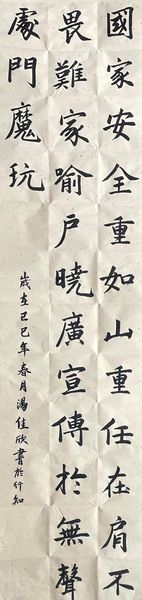 國家安全重如山重任在肩不
畏難家喻戶曉廣宣傳於無聲
處鬥魔玩
歲在己巳年春月湯佳欣書於行知